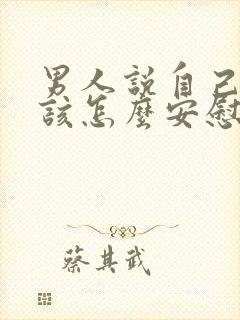 男人說自己
該怎麼安慰
蔡其武